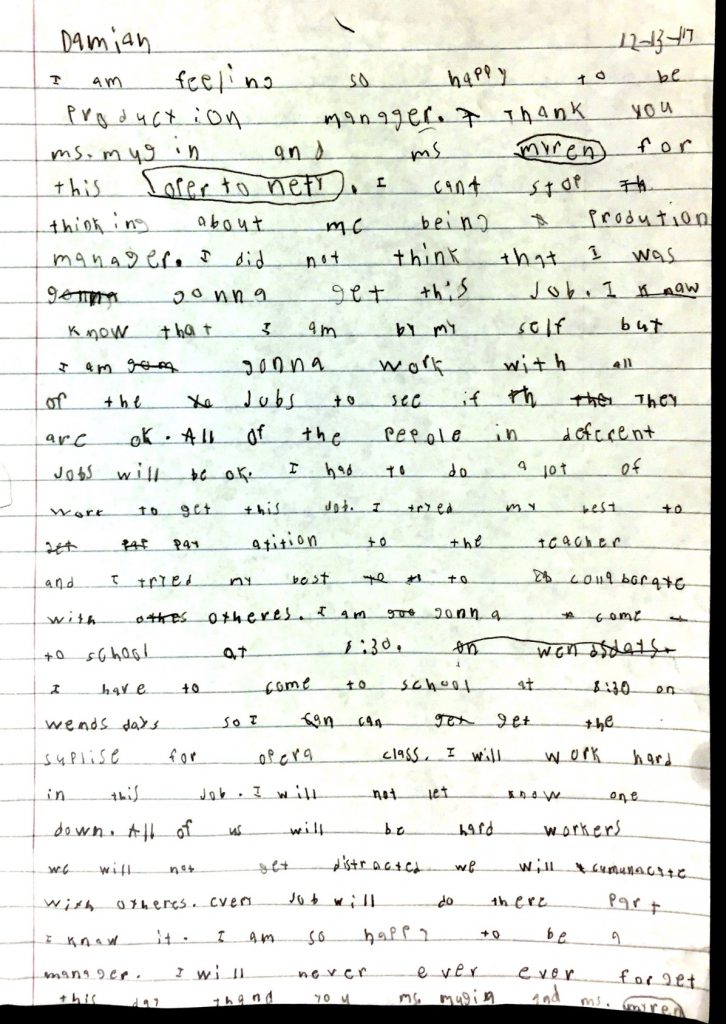 Damian 12-13-17
I am feeling so happy to be
production manager. I Thank you
ms. mugin and ms myren for
this oper to nety. I cant stop Th
thinking about me being a prodution
manager. I did not think that I was
gonna gonna get this Job. I knaw
know that I am by my self but
I am gom gonna work with all
of the Jobs to see if th the They
are ok. All of the pepole in deferent
Jobs will be ok. I had to do a lot of
work to get this Job. I tryed my best to
get pay atition to the teacher
and I tryed my best to to collaborate
with othes otheres. I am goo gonna come
to school at 8:30. on wendsdats
I have to come to school at 8:30 on
wends days so I can can get get the
suplise for opera class. I will work hard
in this Job. I will not let know one
down. All of us will be hard workers
we will not get distracted we will cumunacate
with otheres. every Job will do there part
I know it. I am so happy to be a
manager. I will never ever ever forget
this day thand you ms mugin and ms. myren